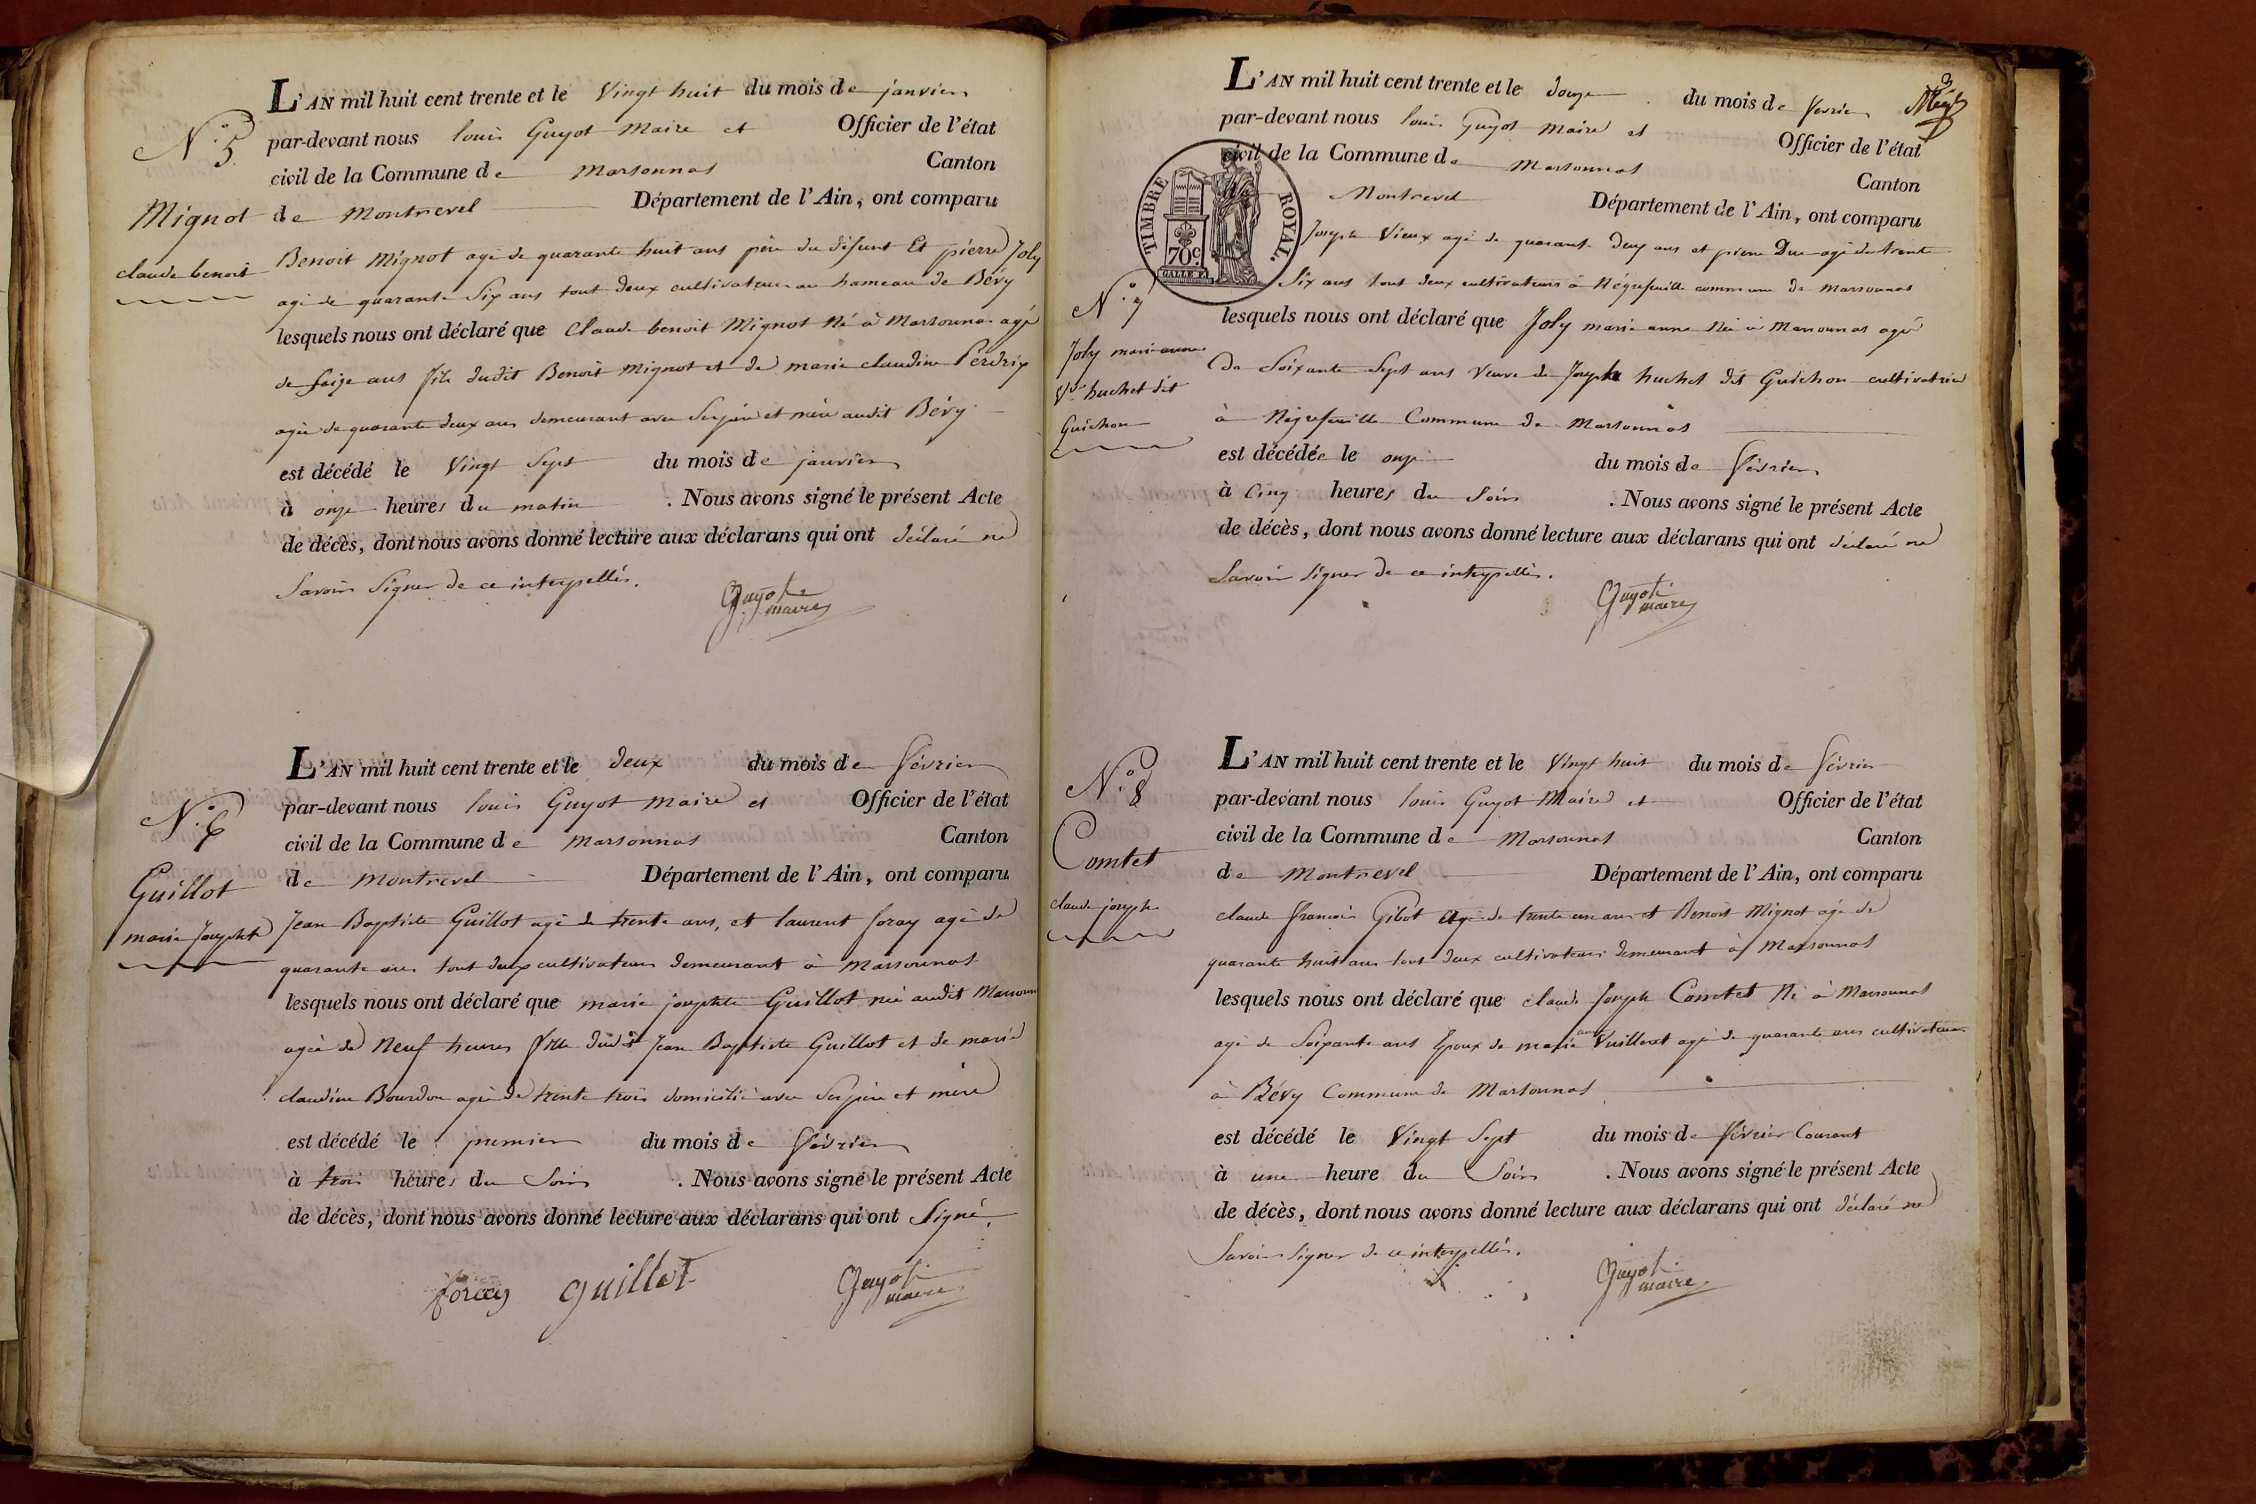 N.° 5.
Mignot
claude benoit
L'AN mil huit cent trente et le Vingt huit du mois de janvier
par-devant nous louis Guyot Maire et Officier de l'état
civil de la Commune de Marsonnas Canton
de Montrevel Département de l'Ain, ont comparu
Benoit Mignot agé de quarante huit ans père du défunt Et pierre Joly
agé de quarante Six ans tout deux cultivateurs au hameau de Bévy
lesquels nous ont déclaré que Claude benoit Mignot Né à Marsonnas agé
de seize ans fils dudit Benoit Mignot et de marie claudine Perdrix
agée de quarante deux ans demeurant avec Ses père et mère audit Bévy
est décédé le Vingt Sept du mois de janvier
à onze heures du matin . Nous avons signé le présent Acte
de décès, dont nous avons donné lecture aux déclarans qui ont déclaré ne
Savoir Signer de ce interpellés.
Guyot
maire
N.° 6
Guillot
marie Josephte
L'AN mil huit cent trente et le deux du mois de février
par-devant nous louis Guyot Maire et Officier de l'état
civil de la Commune de Marsonnas Canton
de Montrevel Département de l'Ain, ont comparu
Jean Baptiste Guillot agé de trente ans, et laurent foray agé de
quarante ans tout deux cultivateurs demeurant à Marsonnas
lesquels nous ont déclaré que marie josephte Guillot née audit Marsonn
agée de Neuf heures fille dudit Jean Baptiste Guillot et de marie
claudine Bourdon agée de trente trois domicilié avec Ses père et mère
est décédé le premier du mois de février
à trois heures du Soir . Nous avons signé le présent Acte
de décès, dont nous avons donné lecture aux déclarans qui ont Signé.
foray guillot Guyot
maire
3
N.° 7
Joly marie anne
Ve huchet dit
Guichon
TIMBRE ROYAL.
70c.
L'AN mil huit cent trente et le douze du mois de fevrier
par-devant nous louis Guyot Maire et Officier de l'état
civil de la Commune de Marsonnas Canton
de Montrevel Département de l'Ain, ont comparu
Joseph Vieux agé de quarante deux ans et pierre Duc agé de trente
Six ans tout deux cultivateurs à Négrefeuille commune de Marsonnas
lesquels nous ont déclaré que Joly marie anne Née à Marsonnas agé
de Soixante Sept ans Veuve de Joseph huchet dit Guichon cultivatrice
à Négrefeuille Commune de Marsonnas
est décédée le onze du mois de février
à Cinq heures du Soir . Nous avons signé le présent Acte
de décès, dont nous avons donné lecture aux déclarans qui ont déclaré ne
Savoir Signer de ce interpellés.
Guyot
maire
N.° 8
Comtet
claude joseph
L'AN mil huit cent trente et le Vingt huit du mois de février
par-devant nous louis Guyot Maire et Officier de l'état
civil de la Commune de Marsonnas Canton
de Montrevel Département de l'Ain, ont comparu
claude francois Gibot Agé de trente un ans et Benoit Mignot agé de
quarante huit ans tout deux cultivateurs demeurant à Marsonnas
lesquels nous ont déclaré que claude Joseph Comtet Né à Marsonnas
agé de Soixante ans Epoux de marie anne Vuillerot agé de quarante ans cultivateurs
à Bévy Commune de Marsonnas
est décédé le Vingt Sept du mois de février Courant
à une heure du Soir . Nous avons signé le présent Acte
de décès, dont nous avons donné lecture aux déclarans qui ont déclaré ne
Savoir Signer de ce interpellés.
Guyot
maire